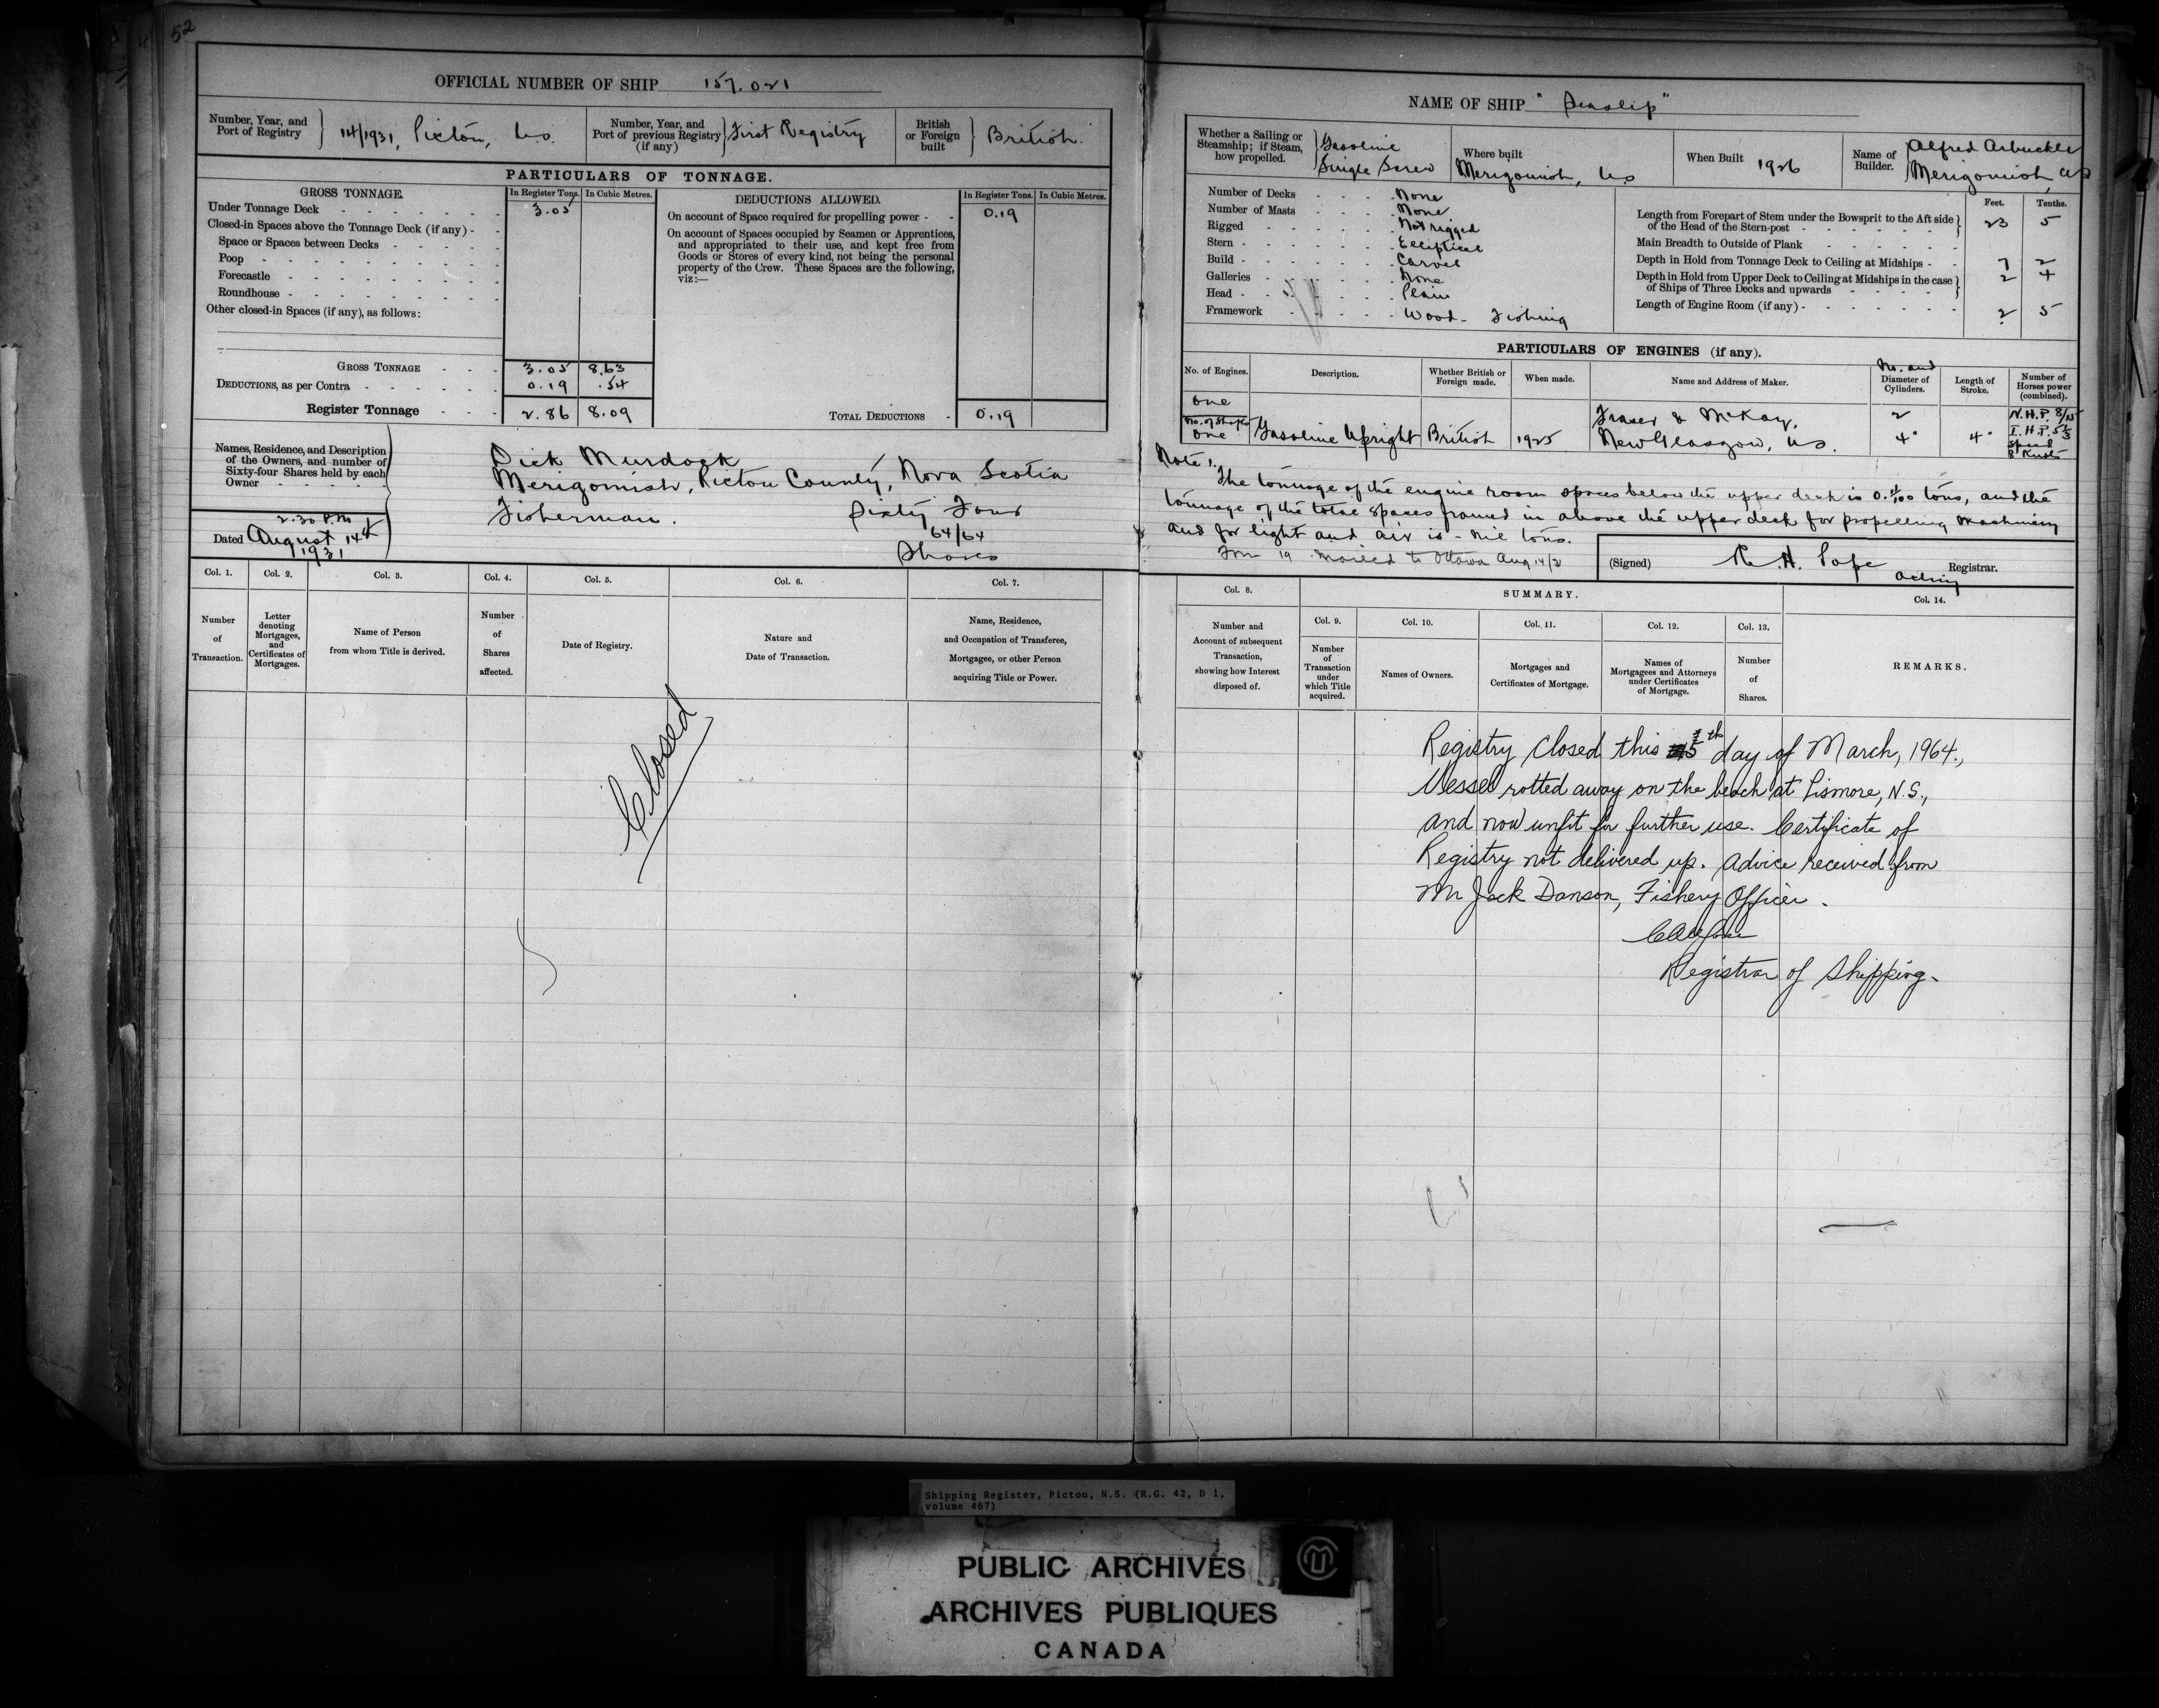 52
OFFICIAL NUMBER OF SHIP 157.021
Number, Year, and Port of Registry } 14/1931, Pictou, N.S.
Number, Year, and Port of previous Registry (if any) } First Registry
British or Foreign built } British.
PARTICULARS OF TONNAGE.
GROSS TONNAGE. In Register Tons. In Cubic Metres.
Under Tonnage Deck 3.05
Closed-in Spaces above the Tonnage Deck (if any)
Space or Spaces between Decks
Poop
Forecastle
Roundhouse
Other closed-in Spaces (if any), as follows:
GROSS TONNAGE 3.05 8.63
DEDUCTIONS, as per Contra 0.19 .54
Register Tonnage 2.86 8.09
DEDUCTIONS ALLOWED. In Register Tons. In Cubic Metres.
On account of Space required for propelling power 0.19
On account of Spaces occupied by Seamen or Apprentices,
and appropriated to their use, and kept free from
Goods or Stores of every kind, not being the personal
property of the Crew. These Spaces are the following,
viz:—
TOTAL DEDUCTIONS 0.19
Names, Residence, and Description
of the Owners, and number of
Sixty-four Shares held by each
Owner
Dick Murdock
Merigomish, Pictou County, Nova Scotia
Fisherman. Sixty Four
64/64
Shares
2.30 P.M.
Dated August 14th
1931
Col. 1. Col. 2. Col. 3. Col. 4. Col. 5. Col. 6. Col. 7.
Number of Transaction.
Letter denoting Mortgages, and Certificates of Mortgages.
Name of Person from whom Title is derived.
Number of Shares affected.
Date of Registry.
Nature and Date of Transaction.
Name, Residence, and Occupation of Transferee, Mortgagee, or other Person acquiring Title or Power.
Closed
NAME OF SHIP "Seaslip"
Whether a Sailing or Steamship; if Steam, how propelled. } Gasoline Single Screw
Where built Merigomish, N.S.
When Built 1926
Name of Builder. } Alfred Arbuckle Merigomish, N.S
Number of Decks None
Number of Masts None
Rigged Not rigged
Stern Elliptical
Build Carvel
Galleries None
Head Plain
Framework Wood - Fishing
Feet. Tenths.
Length from Forepart of Stem under the Bowsprit to the Aft side of the Head of the Stern-post 23 5
Main Breadth to Outside of Plank 7 2
Depth in Hold from Tonnage Deck to Ceiling at Midships 2 4
Depth in Hold from Upper Deck to Ceiling at Midships in the case of Ships of Three Decks and upwards
Length of Engine Room (if any) 2 5
PARTICULARS OF ENGINES (if any).
No. of Engines. Description. Whether British or Foreign made. When made. Name and Address of Maker. No. and Diameter of Cylinders. Length of Stroke. Number of Horses power (combined).
one
No. of Shafts
one Gasoline Upright British 1925 Fraser & McKay, New Glasgow, N.S. 2 4" 4"
N.H.P. 8/15
I.H.P.
Speed
8 Knots
Note!
The tonnage of the engine room spaces below the upper deck is tons, and the
tonnage of the total spaces framed in above the upper deck for propelling machinery
and for light and air is - nil tons.
Form 19 mailed to Ottawa Aug 14/31
(Signed) R. H. Pope
Acting Registrar.
Col. 8. SUMMARY. Col. 14.
Col. 9. Col. 10. Col. 11. Col. 12. Col. 13.
Number and Account of subsequent Transaction, showing how Interest disposed of.
Number of Transaction under which Title acquired.
Names of Owners.
Mortgages and Certificates of Mortgage.
Names of Mortgagees and Attorneys under Certificates of Mortgage.
Number of Shares.
REMARKS.
Registry Closed this 5th day of March, 1964.,
Vessel rotted away on the beach at Lismore, N.S.,
and now unfit for further use. Certificate of
Registry not delivered up. Advice received from
Mr Jack Danson, Fishery Officer.
Registrar of Shipping.
Shipping Register, Pictou, N.S. (R.G. 42, D 1,
volume 467)
PUBLIC ARCHIVES
ARCHIVES PUBLIQUES
CANADA